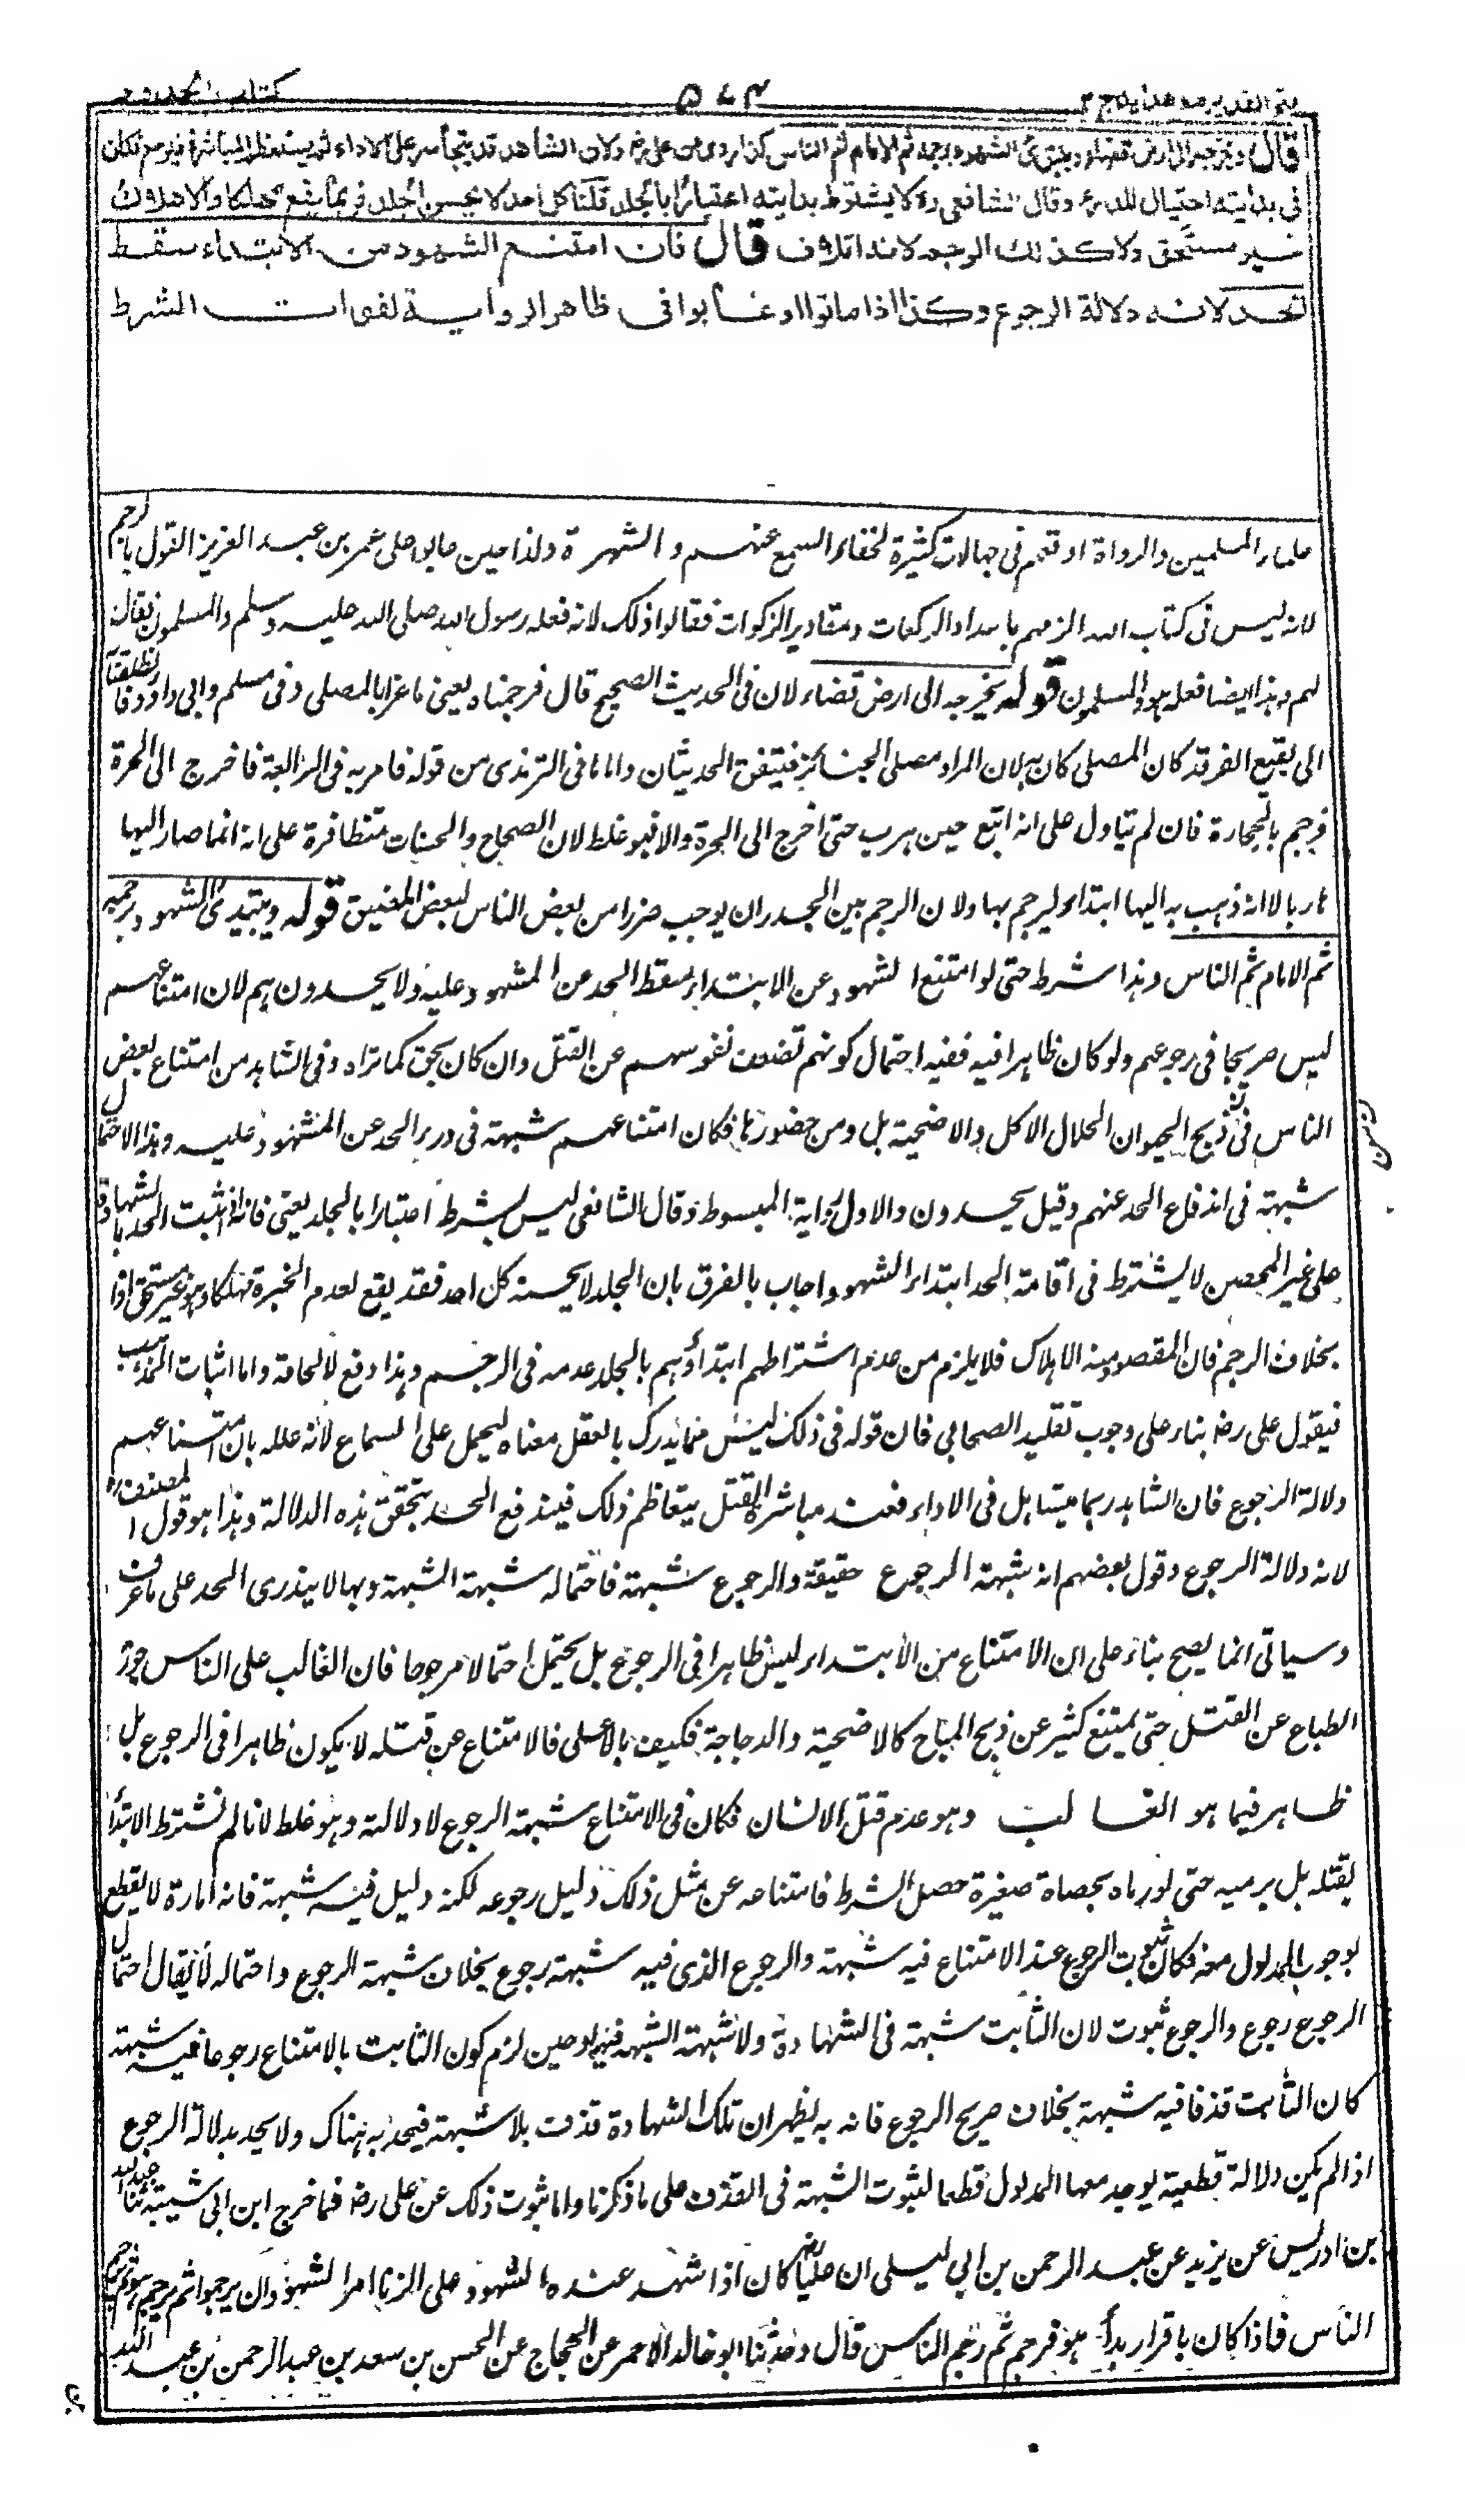 فتح القدير مع هدايه ج ٢ ٥٧٣ كتاب الحدود
قال ويخرجه الى ارض فضاء ويبتدئ الشهود برجمه ثم الامام ثم الناس كذا روى عن على رض ولان الشاهد قد يتجاسر على الاداء ثم يستعظم المباشرة فيرجع فكان
فى بدايته احتيال للدرء وقال الشافعى ره لا يشترط بدايته اعتبارا بالجلد قلنا كل احد لا يحسن الجلد فربما يقع مهلكا والاهلاك
غير مستحق ولا كذلك الرجم لانه اتلاف قال فان امتنع الشهود من الابتداء سقط
الحد لانه دلالة الرجوع وكذا اذا ماتوا او غابوا فى ظاهر الرواية لفوات الشرط
علماء المسلمين والرواة اوقعهم فى جهالات كثيرة لخفاء السمع عنهم و الشهرة ولذا حين عابوا على عمر بن عبد العزيز القول بالرجم
لانه ليس فى كتاب الله الزمهم باعداد الركعات ومقادير الزكوات فقالوا ذلك لانه فعله رسول الله صلى الله عليه وسلم والمسلمون فقال
لهم وهذا ايضا فعله هو والمسلمون قوله يخرجه الى ارض فضاء لان فى الحديث الصحيح قال فرجمناه يعنى ماعزا بالمصلى وفى مسلم وابى داود فانطلقنا
الى بقيع الغرقد كان المصلى كان به لان المراد مصلى الجنائز فيتفق الحديثان واما ما فى الترمذى من قوله فامر به فى الرابعة فاخرج الى الحرة
فرجم بالحجارة فان لم يتاول على انه اتبع حين هرب حتى اخرج الى الحرة والا فهو غلط لان الصحاح والحسان متظافرة على انه انما صار اليها
هاربا لا انه ذهب به اليها ابتداء ليرجم بها ولان الرجم بين الجدران يوجب ضررا من بعض الناس لبعض للضيق قوله ويبتدئ الشهود برجمه
ثم الامام ثم الناس وهذا شرط حتى لو امتنع الشهود عن الابتداء سقط الحد عن المشهود عليه ولا يحدون هم لان امتناعهم
ليس صريحا فى رجوعهم ولو كان ظاهرا فيه ففيه احتمال كونهم تضعف نفوسهم عن القتل وان كان بحق كما تراه وفى الشاهد من امتناع بعض
الناس فى ذبح الحيوان الحلال الاكل والاضحية بل ومن حضورها فكان امتناعهم شبهة فى درء الحد عن المشهود عليه وهذا الاحتمال
شبهة فى اندفاع الحد عنهم وقيل يحدون والاول رواية المبسوط وقال الشافعى ليس بشرط اعتبارا بالجلد يعنى فانه اذا ثبت الحد بالشهادة
على غير المحصن لا يشترط فى اقامة الحد ابتداء الشهود واجاب بالفرق بان الجلد لا يحسنه كل احد فقد يقع لعدم الخبرة مهلكا وهو غير مستحق اذا
بخلاف الرجم فان المقصود منه الاهلاك فلا يلزم من عدم اشتراطهم ابتداؤهم بالجلد عدمه فى الرجم وهذا دفع لالحاقه واما اثبات المذهب
فبقول على رض بناء على وجوب تقليد الصحابى فان قوله فى ذلك ليس مما يدرك بالعقل معناه ليحمل على السماع لانه علله بان امتناعهم
دلالة الرجوع فان الشاهد ربما يتساهل فى الاداء فعند مباشرة القتل يتعاظم ذلك فيندفع الحد بتحقق هذه الدلالة وهذا هو قول المصنف ره
لانه دلالة الرجوع وقول بعضهم انه شبهة الرجوع حقيقة والرجوع شبهة فاحتماله شبهة الشبهة وبها لا يندرئ الحد على ما عرف
وسياتى انما يصح بناء على ان الامتناع من الابتداء ليس ظاهرا فى الرجوع بل يحتمل احتمالا مرجوحا فان الغالب على الناس خور
الطباع عن القتل حتى يمتنع كثير عن ذبح المباح كالاضحية والدجاجة فكيف بالاعلى فالامتناع عن قتله لا يكون ظاهرا فى الرجوع بل
ظاهر فيما هو الغالب وهو عدم قتل الانسان فكان فى الامتناع شبهة الرجوع لا دلالته وهو غلط لانا لم نشترط الابتداء
بقتله بل برميه حتى لو رماه بحصاة صغيرة حصل الشرط فامتناعه عن مثل ذلك دليل رجوعه لكنه دليل فيه شبهة فانه امارة لا يقطع
بوجوب المدلول معه فكان ثبوت الرجوع عند الامتناع فيه شبهة والرجوع الذى فيه شبهة رجوع بخلاف شبهة الرجوع واحتماله لا يقال احتمال
الرجوع رجوع والرجوع ثبوت لان الثابت شبهة فى الشهادة ولا شبهة الشبهة فنقول حين لزم كون الثابت بالامتناع رجوعا فيه شبهة
كان الثابت قذفا فيه شبهة بخلاف صريح الرجوع فانه به يظهر ان تلك الشهادة قذف بلا شبهة فيحد به هناك ولا يحد بدلالة الرجوع
اذا لم يكن دلالة قطعية يوجد معها المدلول قطعا لثبوت الشبهة فى القذف على ما ذكرنا واما ثبوت ذلك عن على رض فما خرج ابن ابى شيبة ثنا عبد الله
بن ادريس عن يزيد عن عبد الرحمن بن ابى ليلى ان عليا رض كان اذا شهد عنده الشهود على الزنا امر الشهود ان يرجموا ثم يرجم هو ثم يرجم
الناس فاذا كان باقرار بدأ هو فرجم ثم رجم الناس قال وحدثنا ابو خالد الاحمر عن الحجاج عن الحسن بن سعد بن عبد الرحمن بن عبد الله